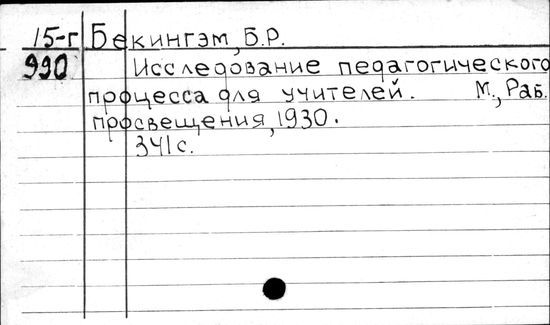 15-г Бекингэм, Б.Р.
990 Исследование педагогического
процесса для учителей. М., Раб.
просвещения, 1930.
341 с.